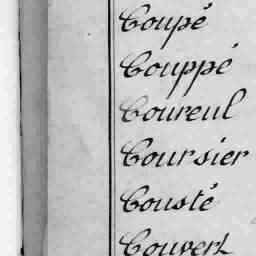 Coupé
Couppé
Coureul
Coursier
Cousté
Couvert